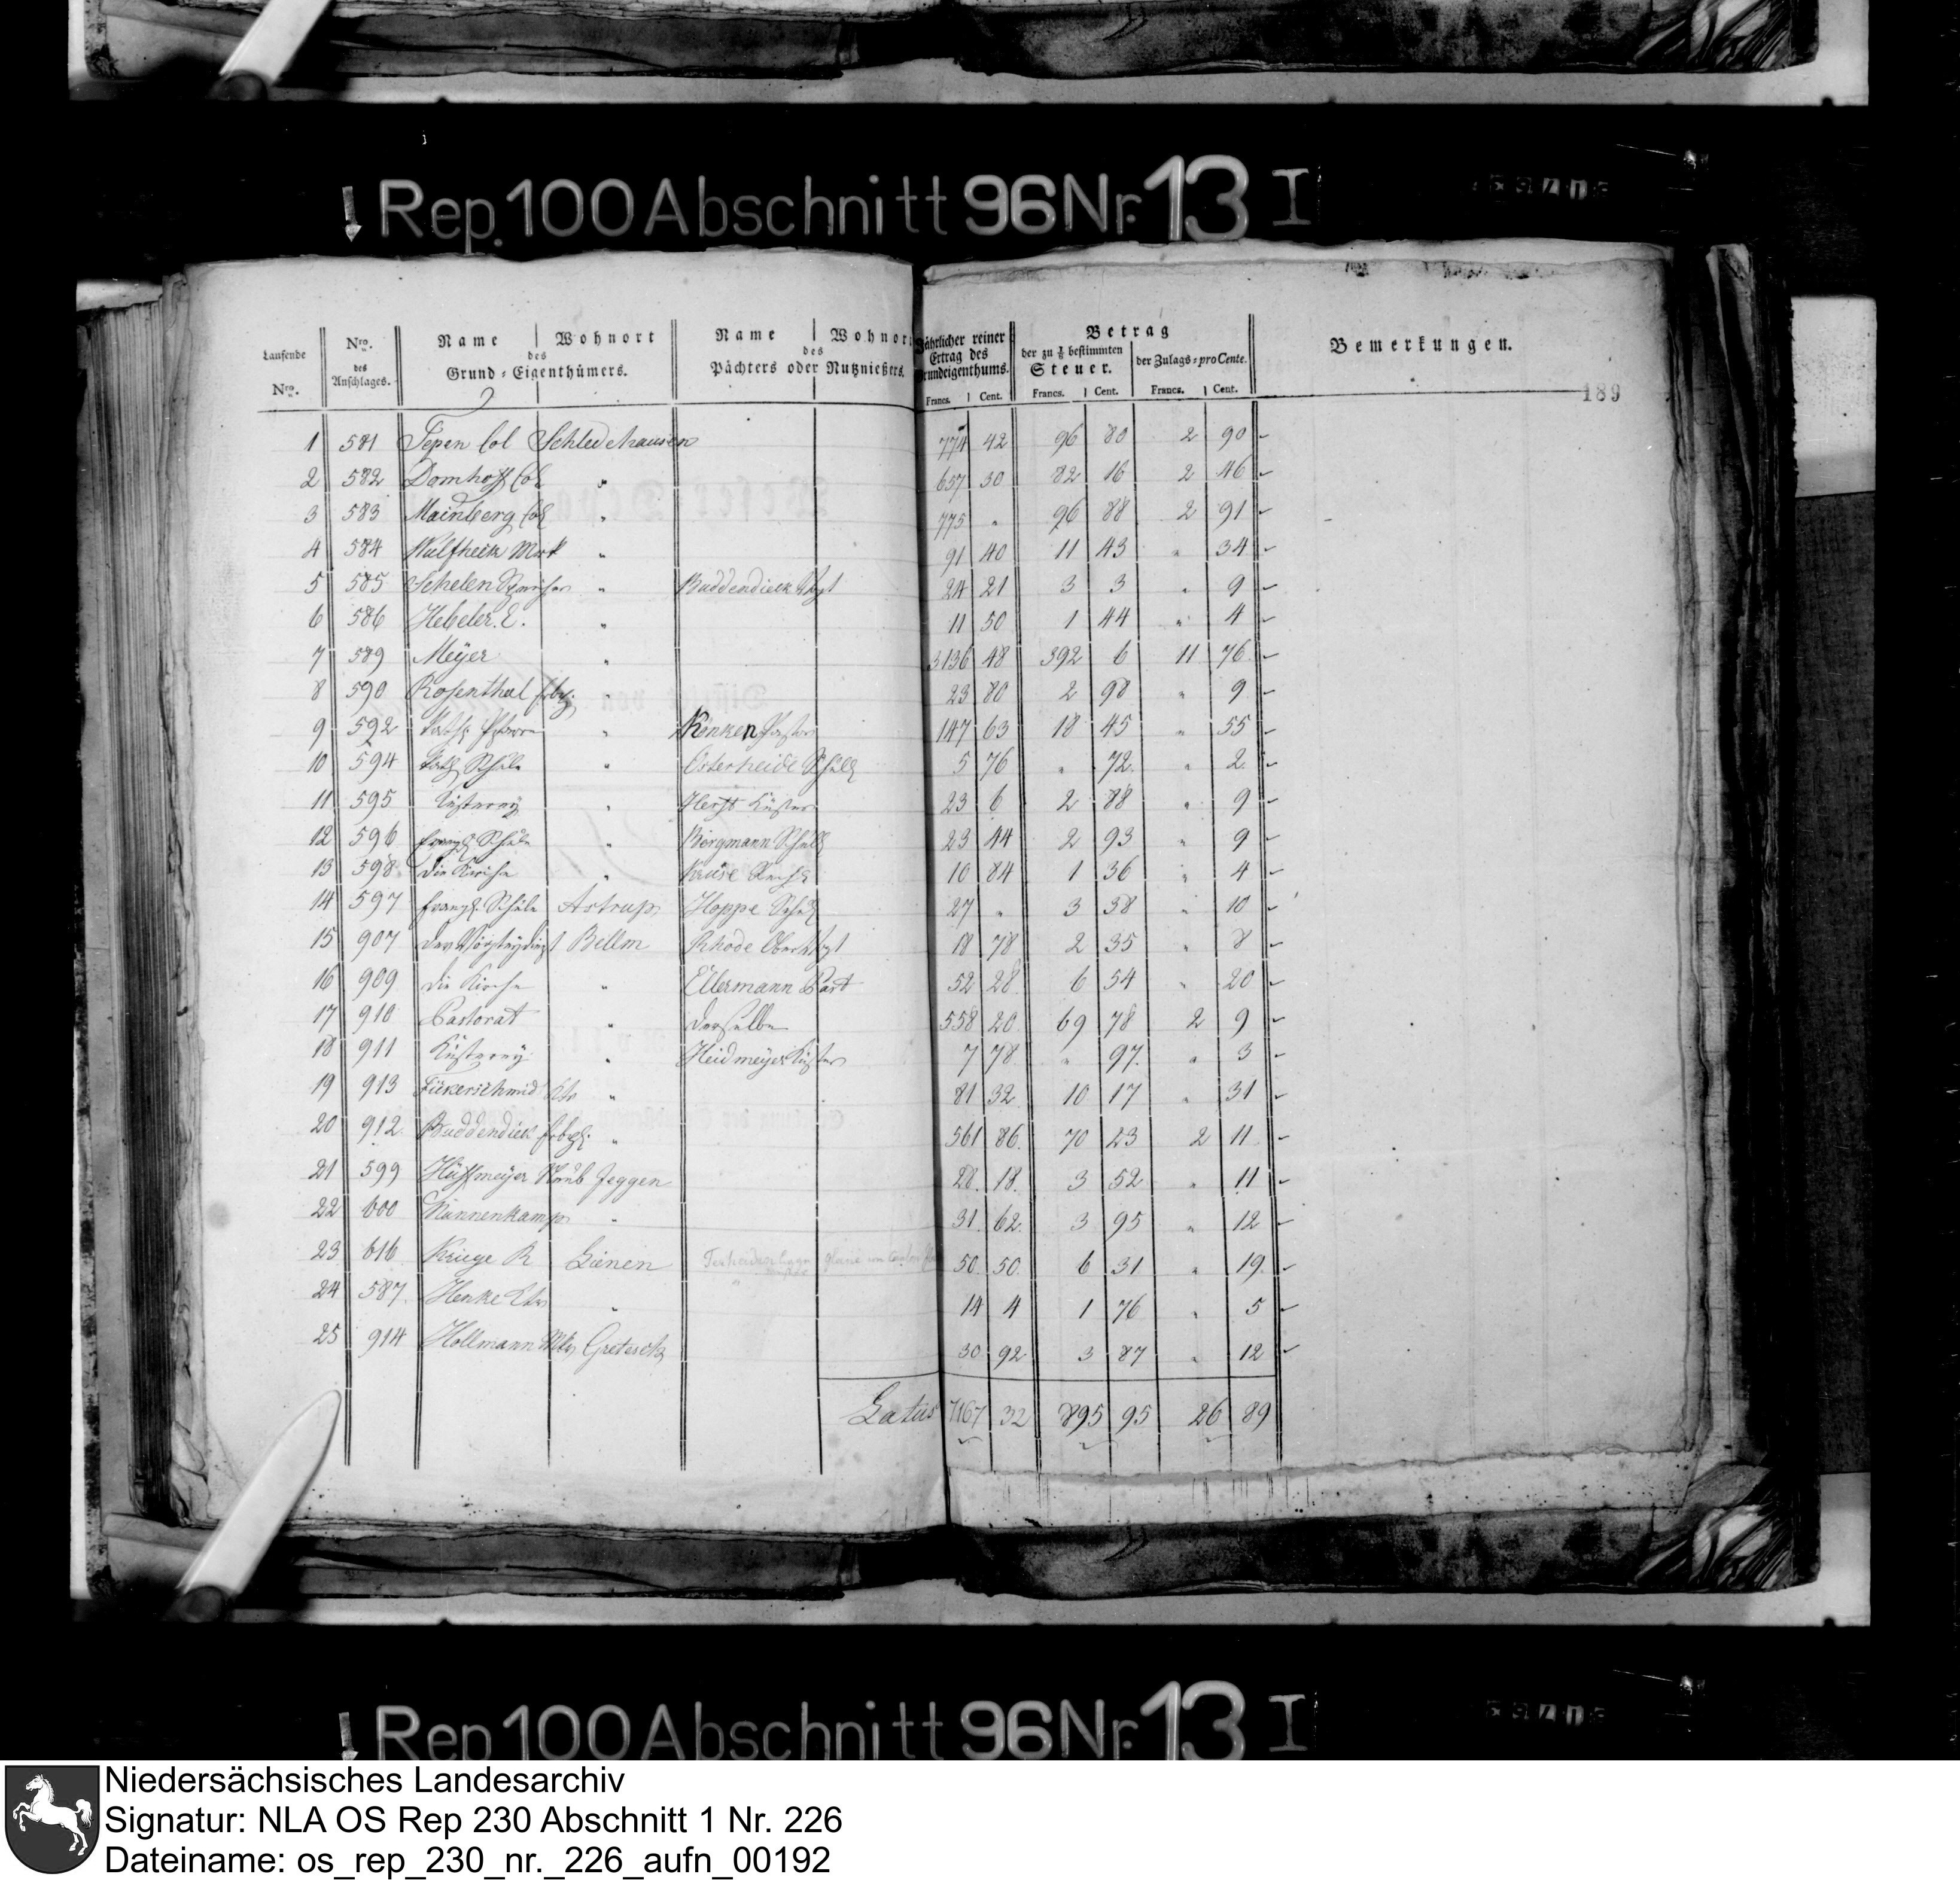 Rep. 100 Abschnitt 96 Nr. 13 I
Laufende Nro. | Nro. des Anschlages. | Name | Wohnort des Grund-Eigenthümers. | Name | Wohnort des Pächters oder Nutznießers. | Jährlicher reiner Ertrag des Grundeigenthums. Francs. | Cent. | Betrag der zu 1/8 bestimmten Steuer. Francs. | Cent. | der Zulags-pro Cente. Francs. | Cent. | Bemerkungen.
189
1 581 Tepen Col Schledehausen 774 42 96 80 2 90
2 582 Domhoff Col " 657 30 82 16 2 46
3 583 Mainberg Col " 775 " 96 88 2 91
4 584 Wulfheim Mrk " 91 40 11 43 " 34
5 585 Schelen " Buddendieck Vogt 24 21 3 3 " 9
6 586 Hebeler. E. " 11 50 1 44 " 4
7 589 Meÿer " 3136 48 392 6 11 76
8 590 Rosenthal " 23 80 2 98 " 9
9 592 Kath. Pfarre " Könken Pastor 147 63 18 45 " 55
10 594 Kath Schule " Osterheide Schull 5 76 " 72 " 2
11 595 Küsterey " Herft Küster 23 6 2 88 " 9
12 596 Evangl Schule " Bergmann Schull 23 44 2 93 " 9
13 598 Die Kirche " Kruse 10 84 1 36 " 4
14 597 Evangl. Schule Astrup Hoppe Schull 27 " 3 38 " 10
15 907 Bellm Rhode Obervogt 18 78 2 35 " 8
16 909 Die Kirche " Ellermann Past 52 28 6 54 " 20
17 910 Pastorat " derselbe 558 20 69 78 2 9
18 911 Küsterey " Heidmeÿer Küster 7 78 " 97 " 3
19 913 Fickerschmid Ktr " 81 32 10 17 " 31
20 912 Buddendiek " 561 86 70 23 2 11
21 599 Hüffmeÿer Jeggen 28 18 3 52 " 11
22 600 Nünnenkamp " 31 62 3 95 " 12
23 616 Kriege R Lienen 50 50 6 31 " 19
24 587 Henke Ktr " 14 4 1 76 " 5
25 914 Hollmann Mk Gretesch 30 92 3 87 " 12
Latus 7167 32 895 95 26 89
Rep. 100 Abschnitt 96 Nr. 13 I
Niedersächsisches Landesarchiv
Signatur: NLA OS Rep 230 Abschnitt 1 Nr. 226
Dateiname: os_rep_230_nr._226_aufn_00192